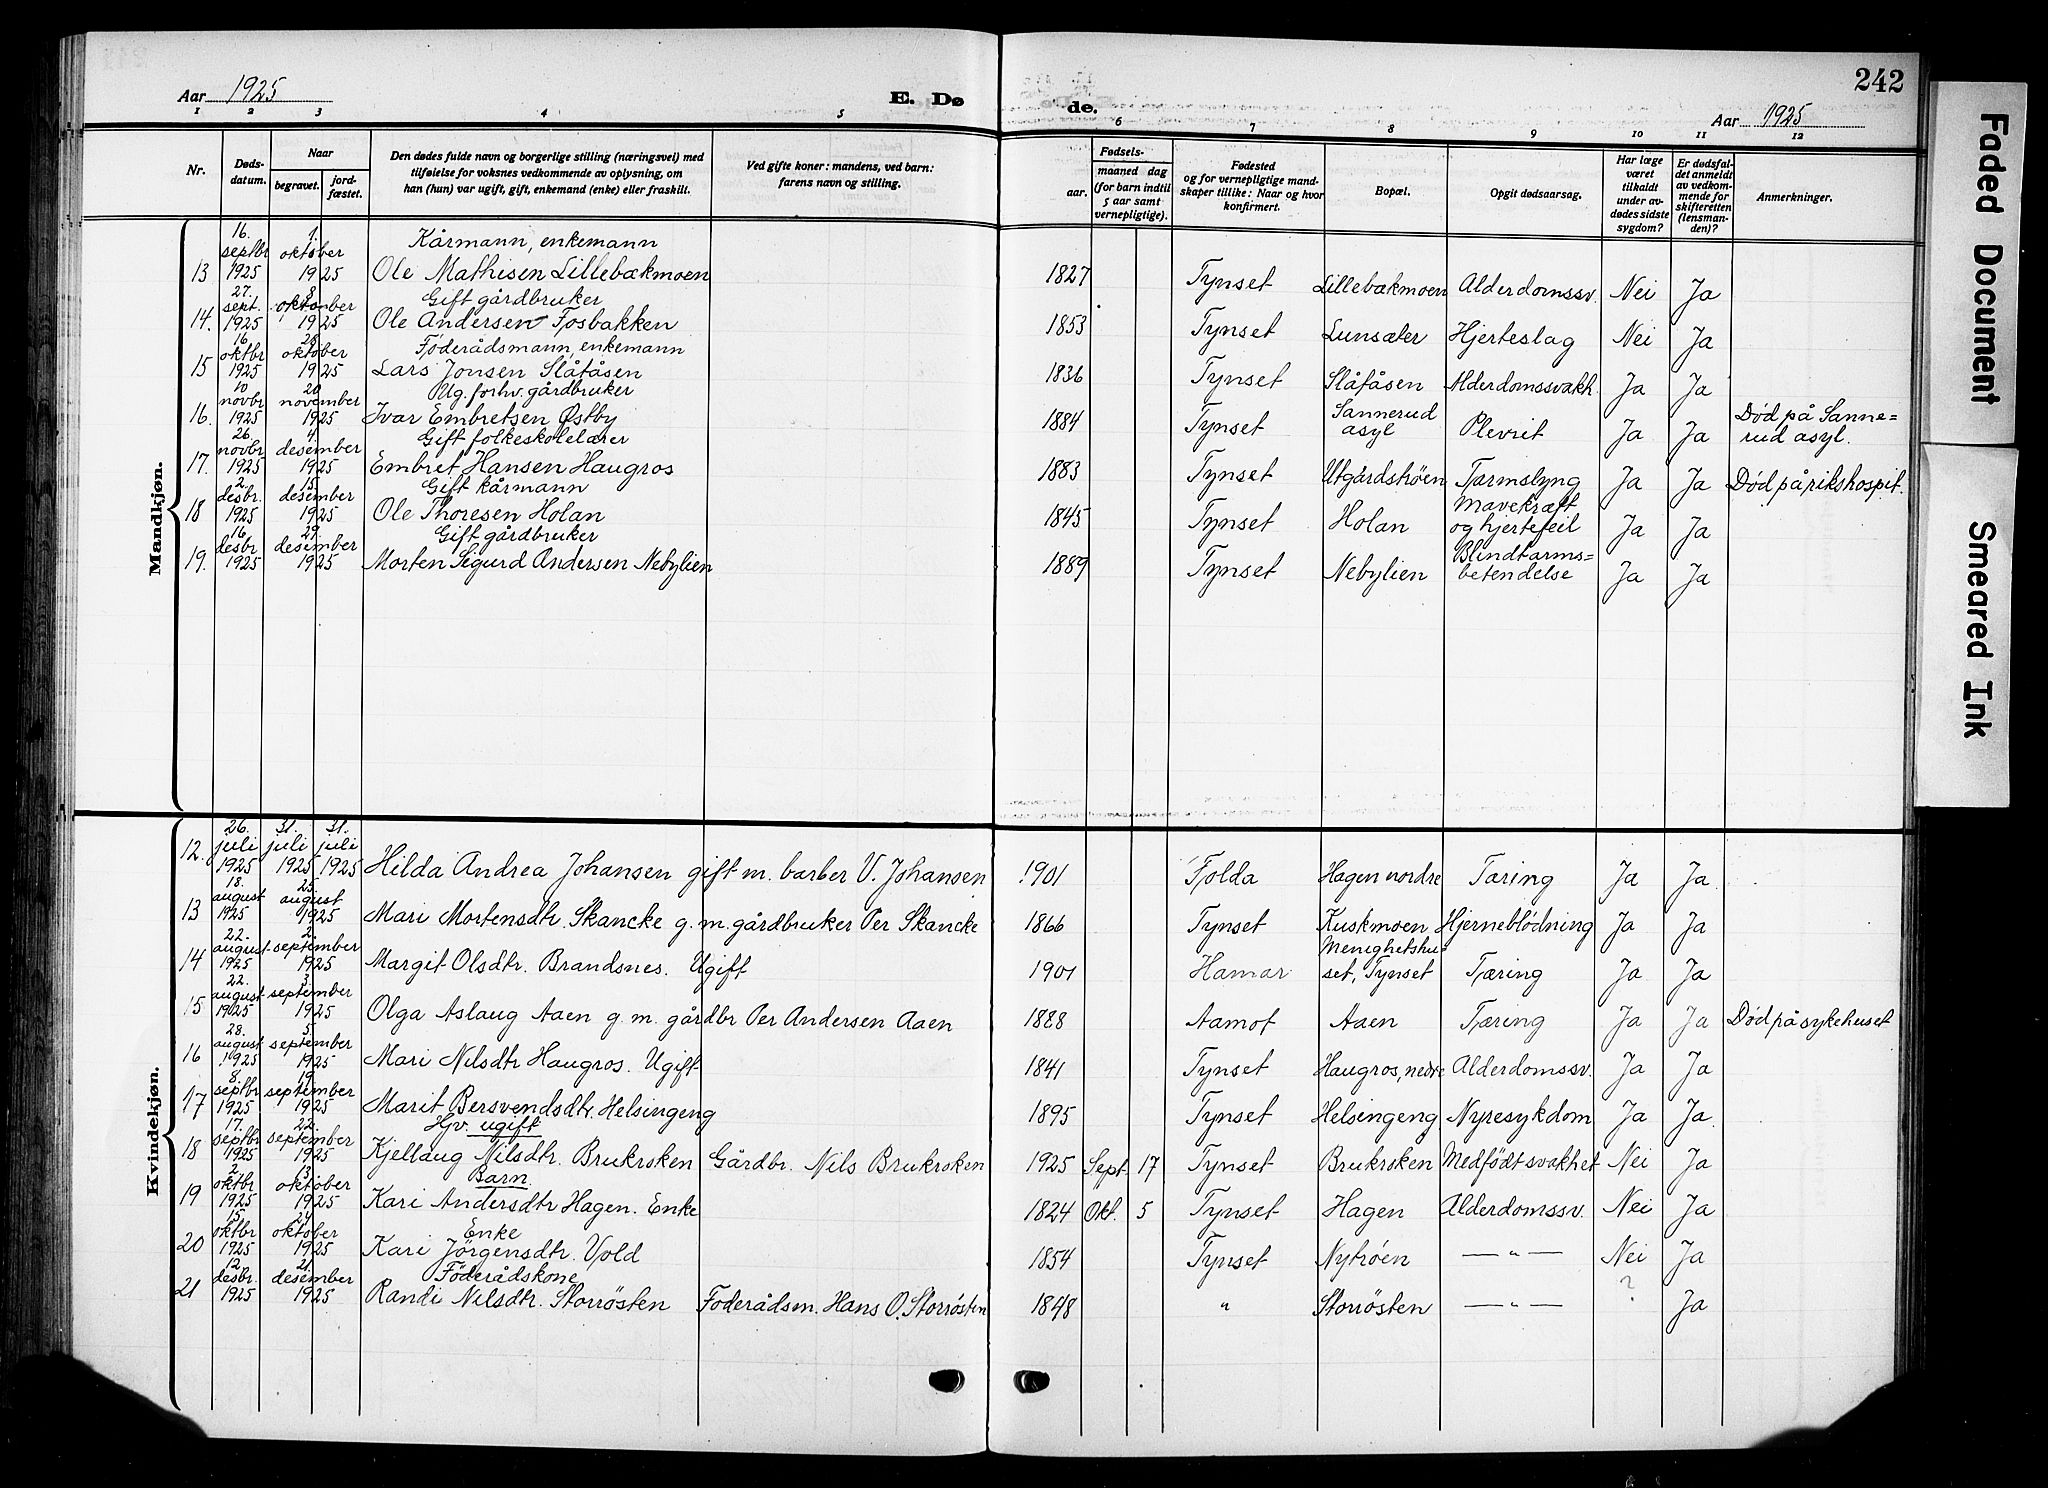 Aar 1925
E. Døde.
242
Aar 1925
1 2 3 4 5 6 7 8 9 10 11 12
Nr.
Døds-datum.
Naar
begravet.
jord-fæstet.
Den dødes fulde navn og borgerlige stilling (næringsvei) med
tilføielse for voksnes vedkommende av oplysning, om
han (hun) var ugift, gift, enkemand (enke) eller fraskilt.
Ved gifte koner: mandens, ved barn:
farens navn og stilling.
Fødsels-
aar.
maaned dag
(for barn indtil
5 aar samt
vernepligtige).
Fødested
og for vernepligtige mand-
skaper tillike: Naar og hvor
konfirmert.
Bopæl.
Opgit dødsaarsag.
Har læge
været
tilkaldt
under av-
dødes sidste
sygdom?
Er dødsfal-
det anmeldt
av vedkom-
mende for
skifteretten
(lensman-
den)?
Anmerkninger.
Mandkjøn.
13 16. septbr 1925 1. oktober 1925 Kårmann, enkemann Ole Mathisen Lillebækmoen 1827 Tynset Lillebækmoen Alderdomssv. Nei Ja
14. 27. sept. 1925 8 oktober 1925 Gift gårdbruker Ole Andersen Fosbakken 1853 Tynset Lunsæter Hjerteslag Nei Ja
15 16. oktbr 1925 28. oktober 1925 Føderådsmann, enkemann Lars Jonsen Slåfåsen 1836 Tynset Slåfåsen Alderdomssvakh. Ja Ja
16. 10 novbr 1925 20 november 1925 Ug. forhv. gårdbruker Ivar Embretsen Østby 1884 Tynset Sannerud asyl Plevrit Ja Ja Død på Sanne=rud asyl.
17. 26. novbr 1925 4. desember 1925 Gift folkeskolelærer Embret Hansen Haugros 1883 Tynset Utgårdstrøen Tarmslyng Ja Ja Død på rikshospit.
18 2. desbr. 1925 15. desember 1925 Gift kårmann Ole Thoresen Holan 1845 Tynset Holan Mavekræft og hjertefeil Ja Ja
19. 16 desbr. 1925 29. desember 1925 Gift gårdbruker Morten Sigurd Andersen Nebylien 1889 Tynset Nebylien Blindtarms=betendelse Ja Ja
Kvindekjøn.
12. 26. juli 1925 31. juli 1925 31. juli 1925 Hilda Andrea Johansen gift m. barber V. Johansen 1901 Folda Hagen nordre Tæring Ja Ja
13 18. august 1925 25. august 1925 Mari Mortensdtr Skancke g. m. gårdbruker Per Skancke 1866 Tynset Kuskmoen Hjerneblödning Ja Ja
14 22. august 1925 2. september 1925 Margit Olsdtr. Brandsnes. Ugift 1901 Hamar Menighetshuset, Tynset Tæring Ja Ja
15 22. august 1925 3. september 1925 Olga Aslaug Aaen g. m. gårdbr Per Andersen Aaen 1888 Aamot Aaen Tæring Ja Ja Død på sykehuset
16 28. august 1925 5. september 1925 Mari Nilsdtr Haugros. Ugift 1841 Tynset Haugros, nedre Alderdomssv. Ja Ja
17 8. septbr 1925 19. september 1925 Marit Bersvendsdtr. Helsingeng Hjv. ugift 1895 Tynset Helsingeng Nyresykdom Ja Ja.
18 17. septbr 1925 22. september 1925 Kjellaug Nilsdtr. Brukroken Barn. Gårdbr. Nils Brukroken 1925 Sept. 17 Tynset Brukroken Medfödt svakhet Nei Ja
19 2. oktbr 1925 13. oktober 1925 Kari Andersdtr Hagen. Enke 1824 Okt. 5 Tynset Hagen Alderdomssv. Nei Ja
20 15. oktbr 1925 24 oktober 1925 Enke Kari Jörgensdtr. Vold 1854 Tynset Nytröen — " — Nei Ja
21 12. desbr. 1925 21. desember 1925 Föderådskone Randi Nilsdtr. Storrösten Föderådsm. Hans O. Storrösten 1848 " Storrösten — " — ? Ja
Faded Document
Smeared Ink